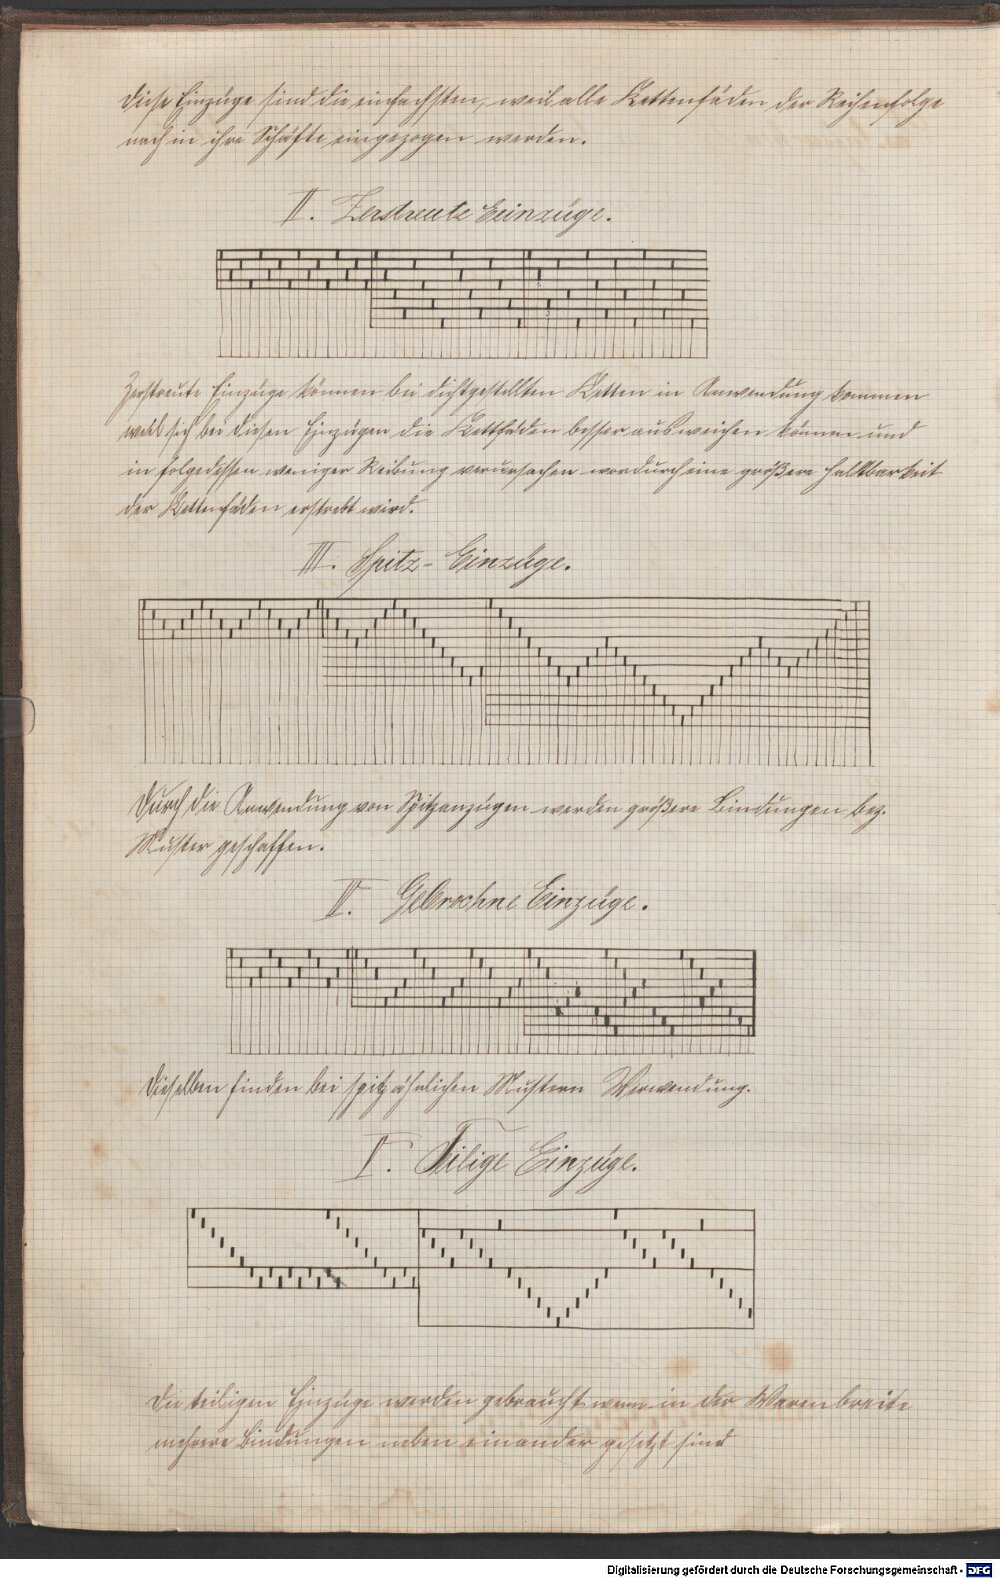 Diese Einzüge sind die einfachsten, weil alle Kettenfäden der Reihenfolge
nach in ihre Schäfte eingezogen werden.
II. Zerstreute Einzüge.
Zerstreute Einzüge können bei dichtgestellten Ketten in Anwendung kommen
weil sich bei diesen Einzügen die Kettfäden besser ausweichen können und
in folgedessen weniger Reibung verursachen wordurch eine größere Haltbarkeit
der Kettenfäden erstrebt wird.
III. Spitz-Einzüge.
Durch die Anwendung von Spitzeinzügen werden größere Bindungen bez.
Muster geschaffen.
IV. Gebrochne Einzüge.
Dieselben finden bei spitzähnlichen Mustern Verwendung.
V. Teilige Einzüge.
Die teiligen Einzüge werden gebraucht wenn in der Warenbreite
mehrere Bindungen neben einander gesetzt sind
Digitalisierung gefördert durch die Deutsche Forschungsgemeinschaft - DFG